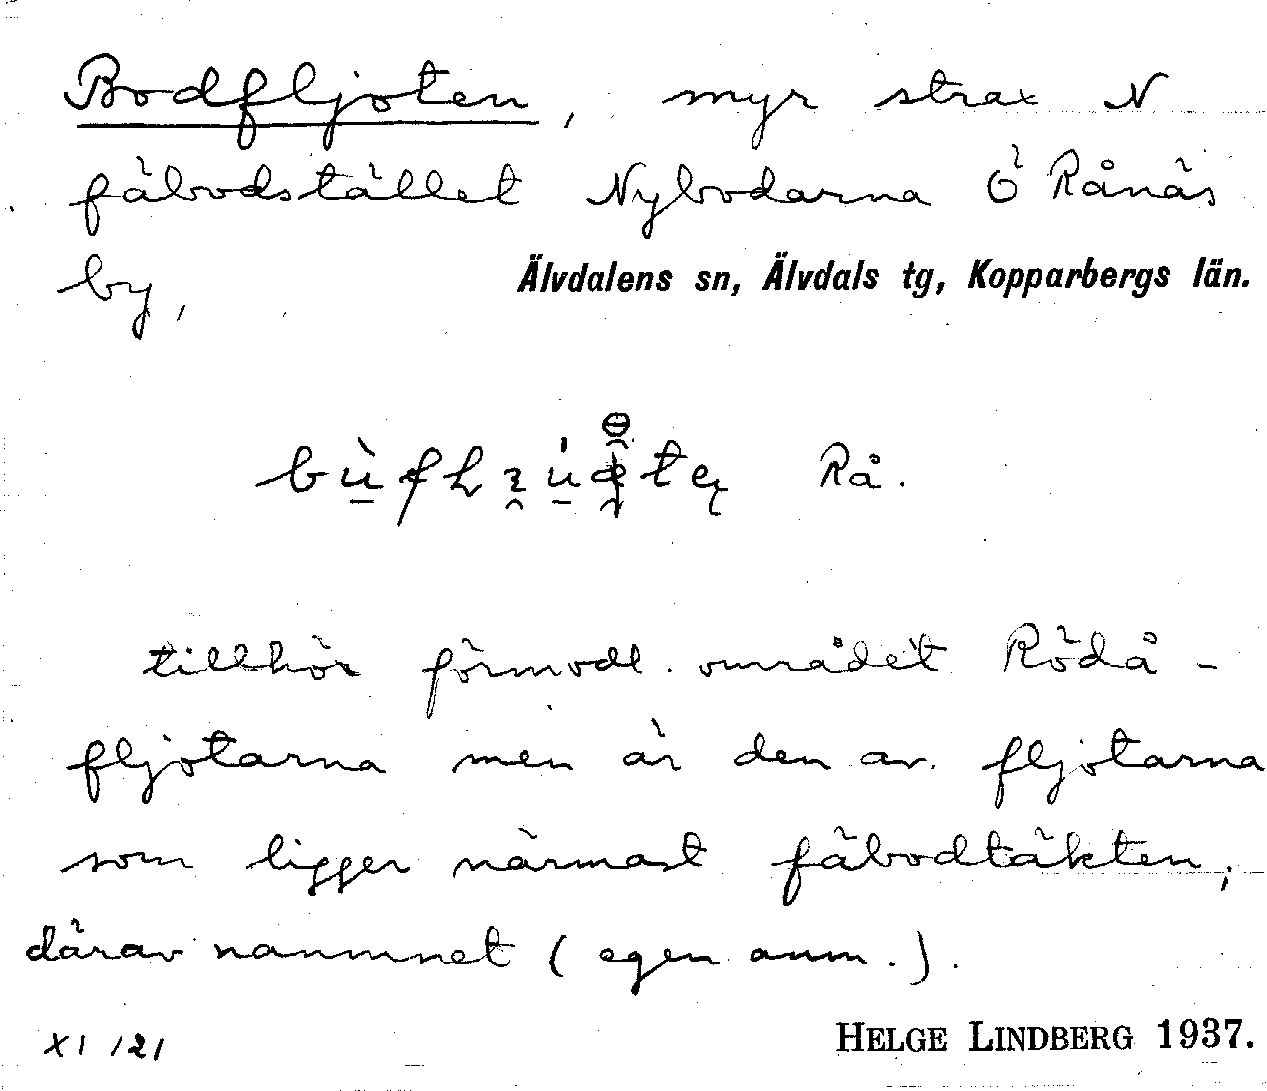 Bodfljoten, myr strax N
fäbodstället Nybodarna Ö Rånäs
by,
Älvdalens sn, Älvdals tg, Kopparbergs län.
Rå.
tillhör förmodl. området Rödå-
fljotarna men är den av fljotarna
som ligger närmast fäbodtäkten,
därav namnet (egen anm.).
XI /21
HELGE LINDBERG 1937.